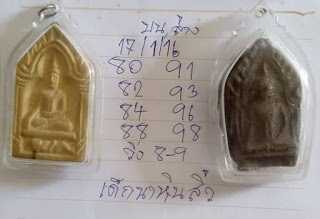 บน ล่าง
17/1/16
80 91
82 93
84 96
88 98
วิ่ง 8-9
เด็กนาหินสิ่ว